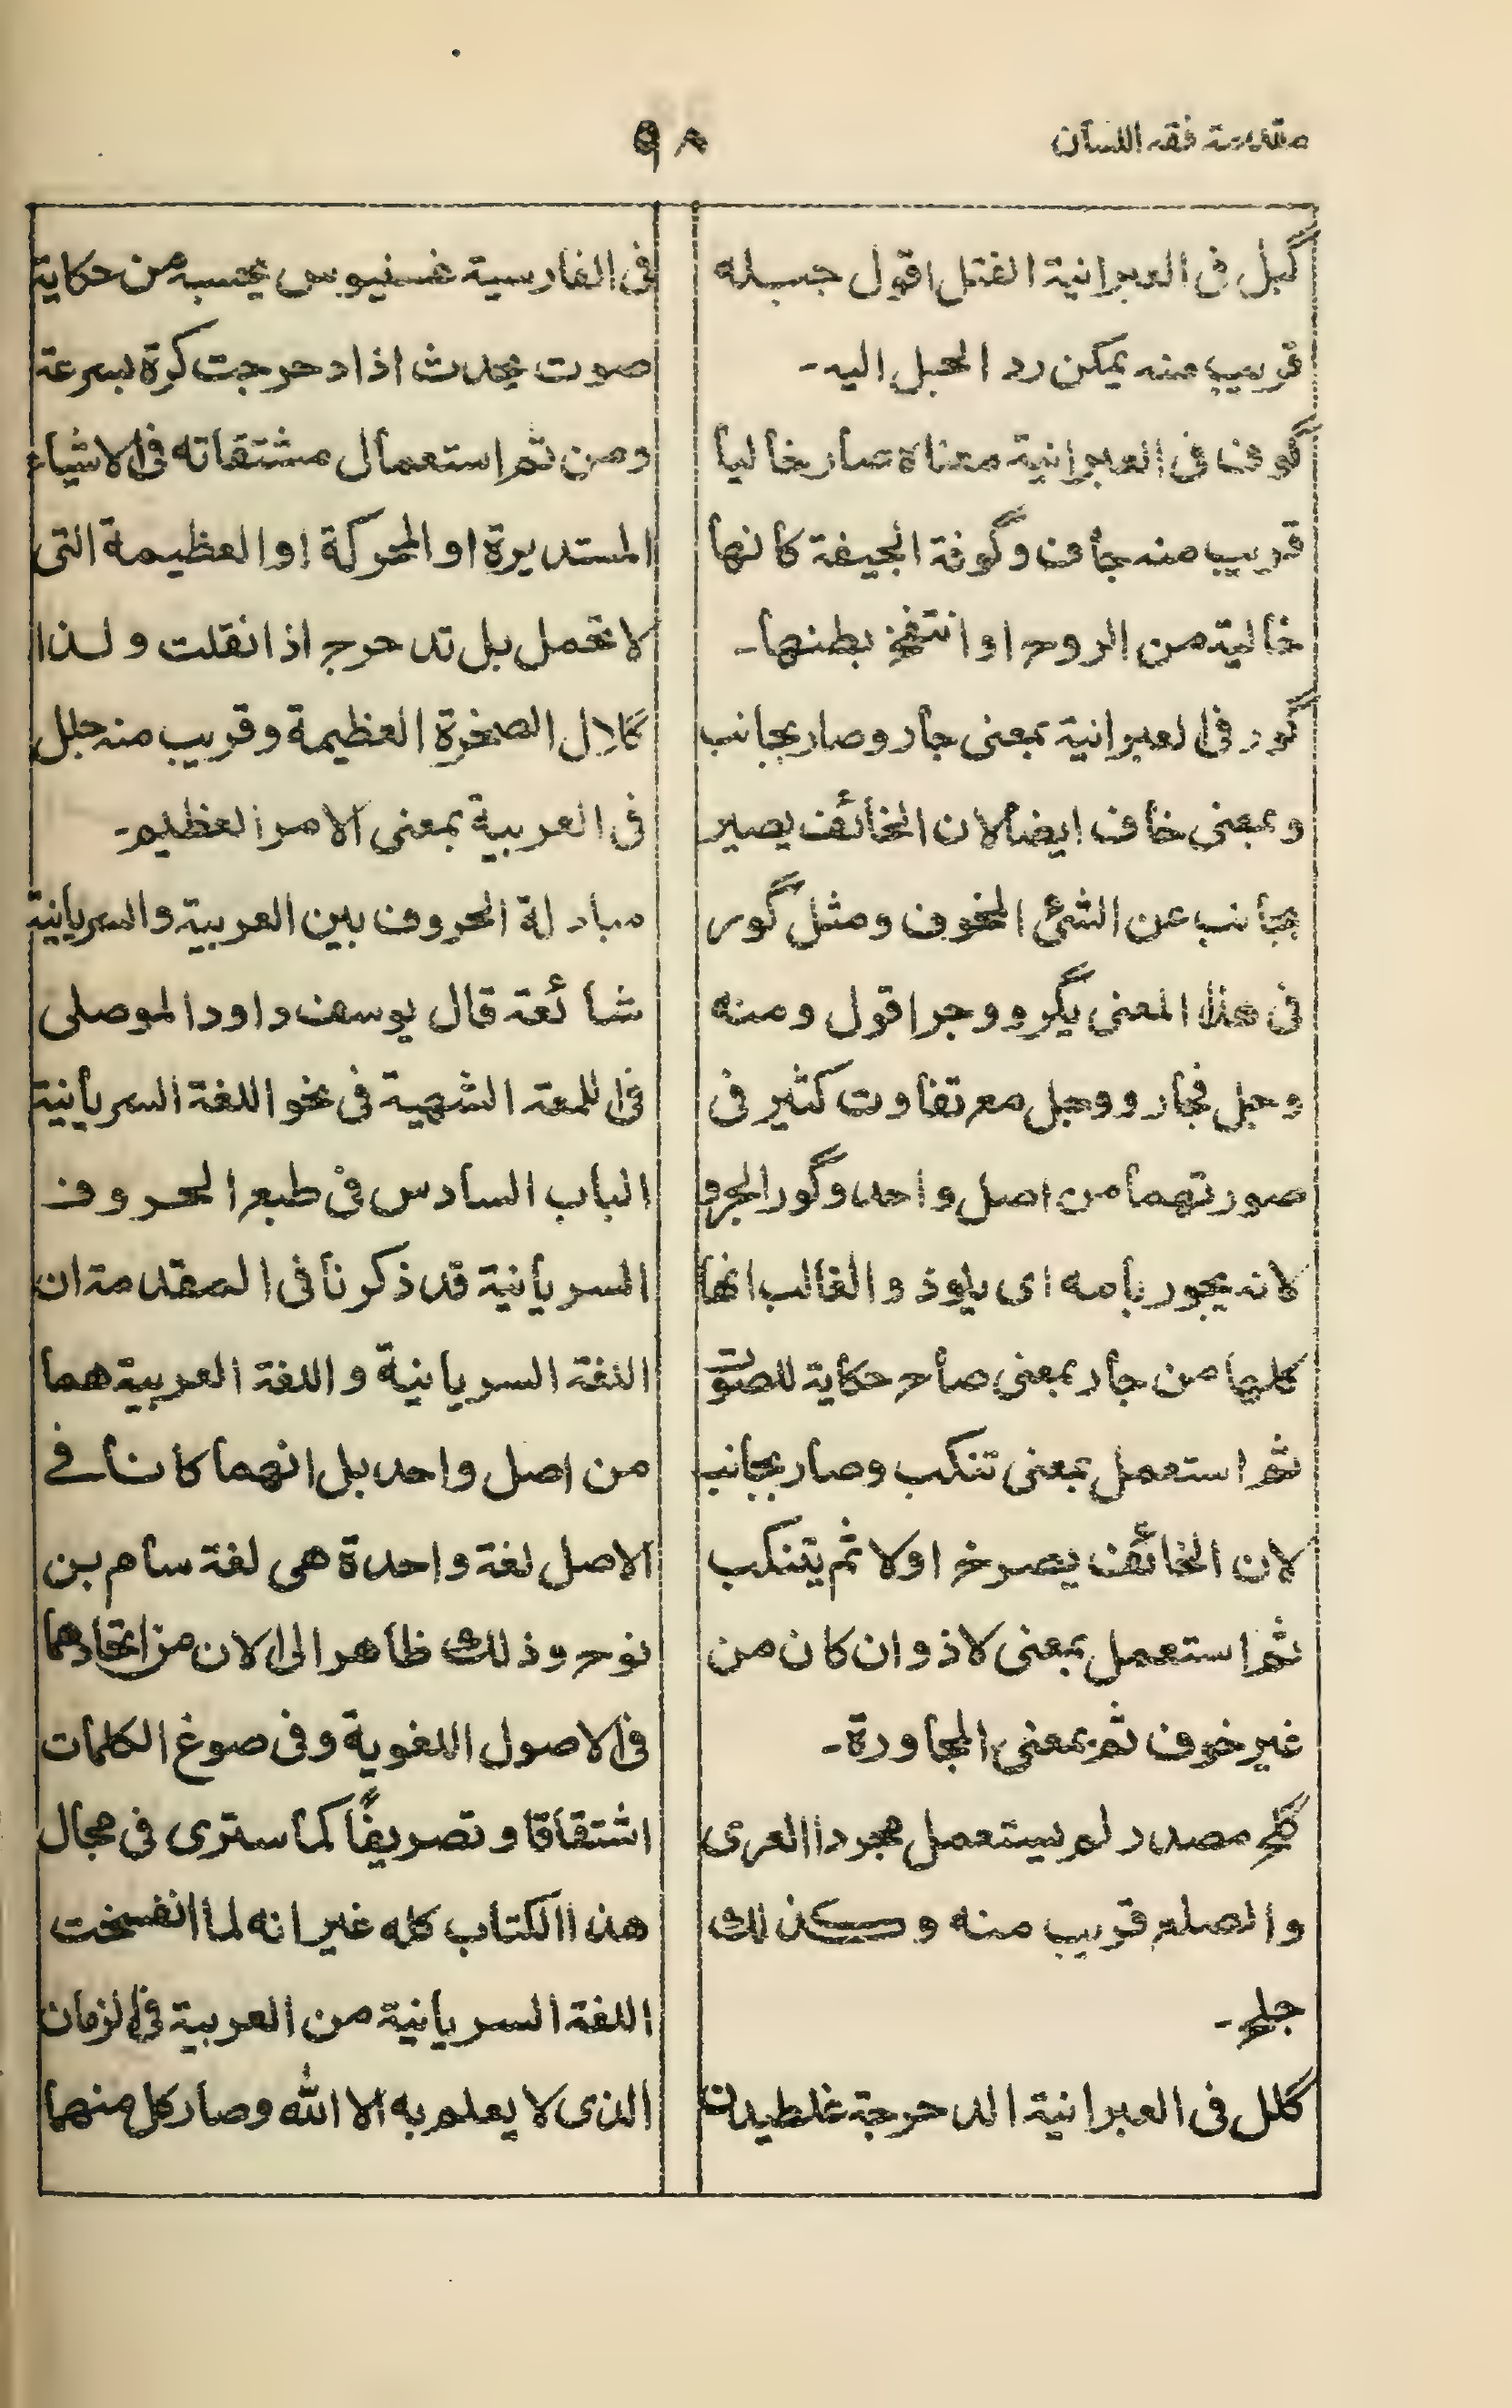 مقدمة فقه اللسان
٩٨
گبل فى العبرانية الفتل اقول جبله
قريب منه يمكن رد الحبل اليه ـ
گوف فى العبرانية معناه صار خاليا
قريب منه جأف وگوفة الجيفة كانها
خالية من الروح او انتفخ بطنها ـ
گور فى العبرانية بمعنى جار وصار بجانب
وبمعنى خاف ايضا لان الخائف يصير
بجانب عن الشئ المخوف ومثل گور
فى هذا المعنى يگر ووجر اقول ومنه
وجل فجار ووجل مع تفاوت كثير فى
صورتهما من اصل واحد وگور الجرو
لانه يجور بامه اى يلوذ والغالب انها
كلها من جار بمعنى صاح حكاية للصوت
ثم استعمل بمعنى تنكب وصار بجانب
لان الخائف يصرخ اولا ثم يتنكب
ثم استعمل بمعنى لاذ وان كان من
غير خوف ثم بمعنى المجاورة ـ
گلح مصدر لم يستعمل مجردا العرى
والصلع قريب منه وكذلك
جلح ـ
گلل فى العبرانية الدحرجة غلطيدن
فى الفارسية غسنيوس يحسبه من حكاية
صوت يحدث اذا دحرجت كرة بسرعة
ومن ثم استعمال مشتقاته فى الاشياء
المستديرة او المحركة او العظيمة التى
لا تحمل بل تدحرج اذا نقلت ولذا
گلال الصخرة العظيمة وقريب منه جلل
فى العربية بمعنى الامر العظيم ـ
مبادلة الحروف بين العربية والسريانية
شائعة قال يوسف داود الموصلى
فى اللمعة الشهية فى نحو اللغة السريانية
الباب السادس فى طبع الحروف
السريانية قد ذكرنا فى المقدمة ان
اللغة السريانية واللغة العربية هما
من اصل واحد بل انهما كانا فے
الاصل لغة واحدة هى لغة سام بن
نوح وذلك ظاهر الى الان من اتحادهما
فى الاصول اللغوية وفى صوغ الكلمات
اشتقاقا وتصريفًا كما سترى فى مجال
هذا الكتاب كله غير انه لما انفسخت
اللغة السريانية من العربية فى الزمان
الذى لا يعلم به الا الله وصار كل منهما